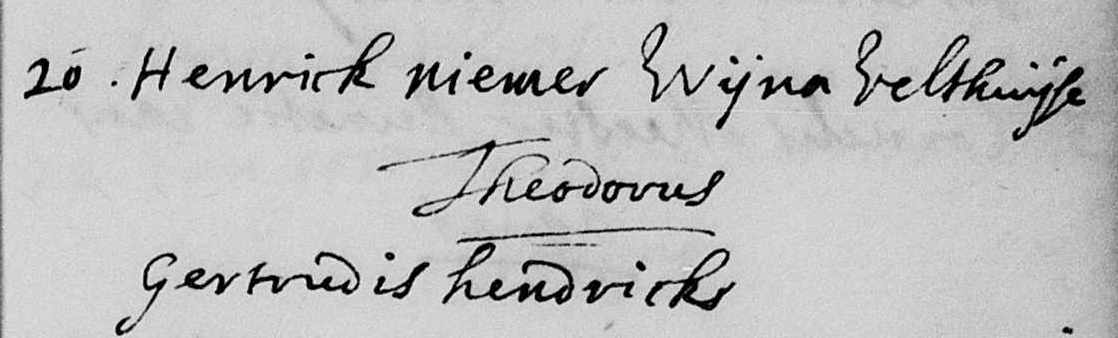 20. Henrick niemer Wijna Velthuijse
Theodorus
Gertrudis hendricks